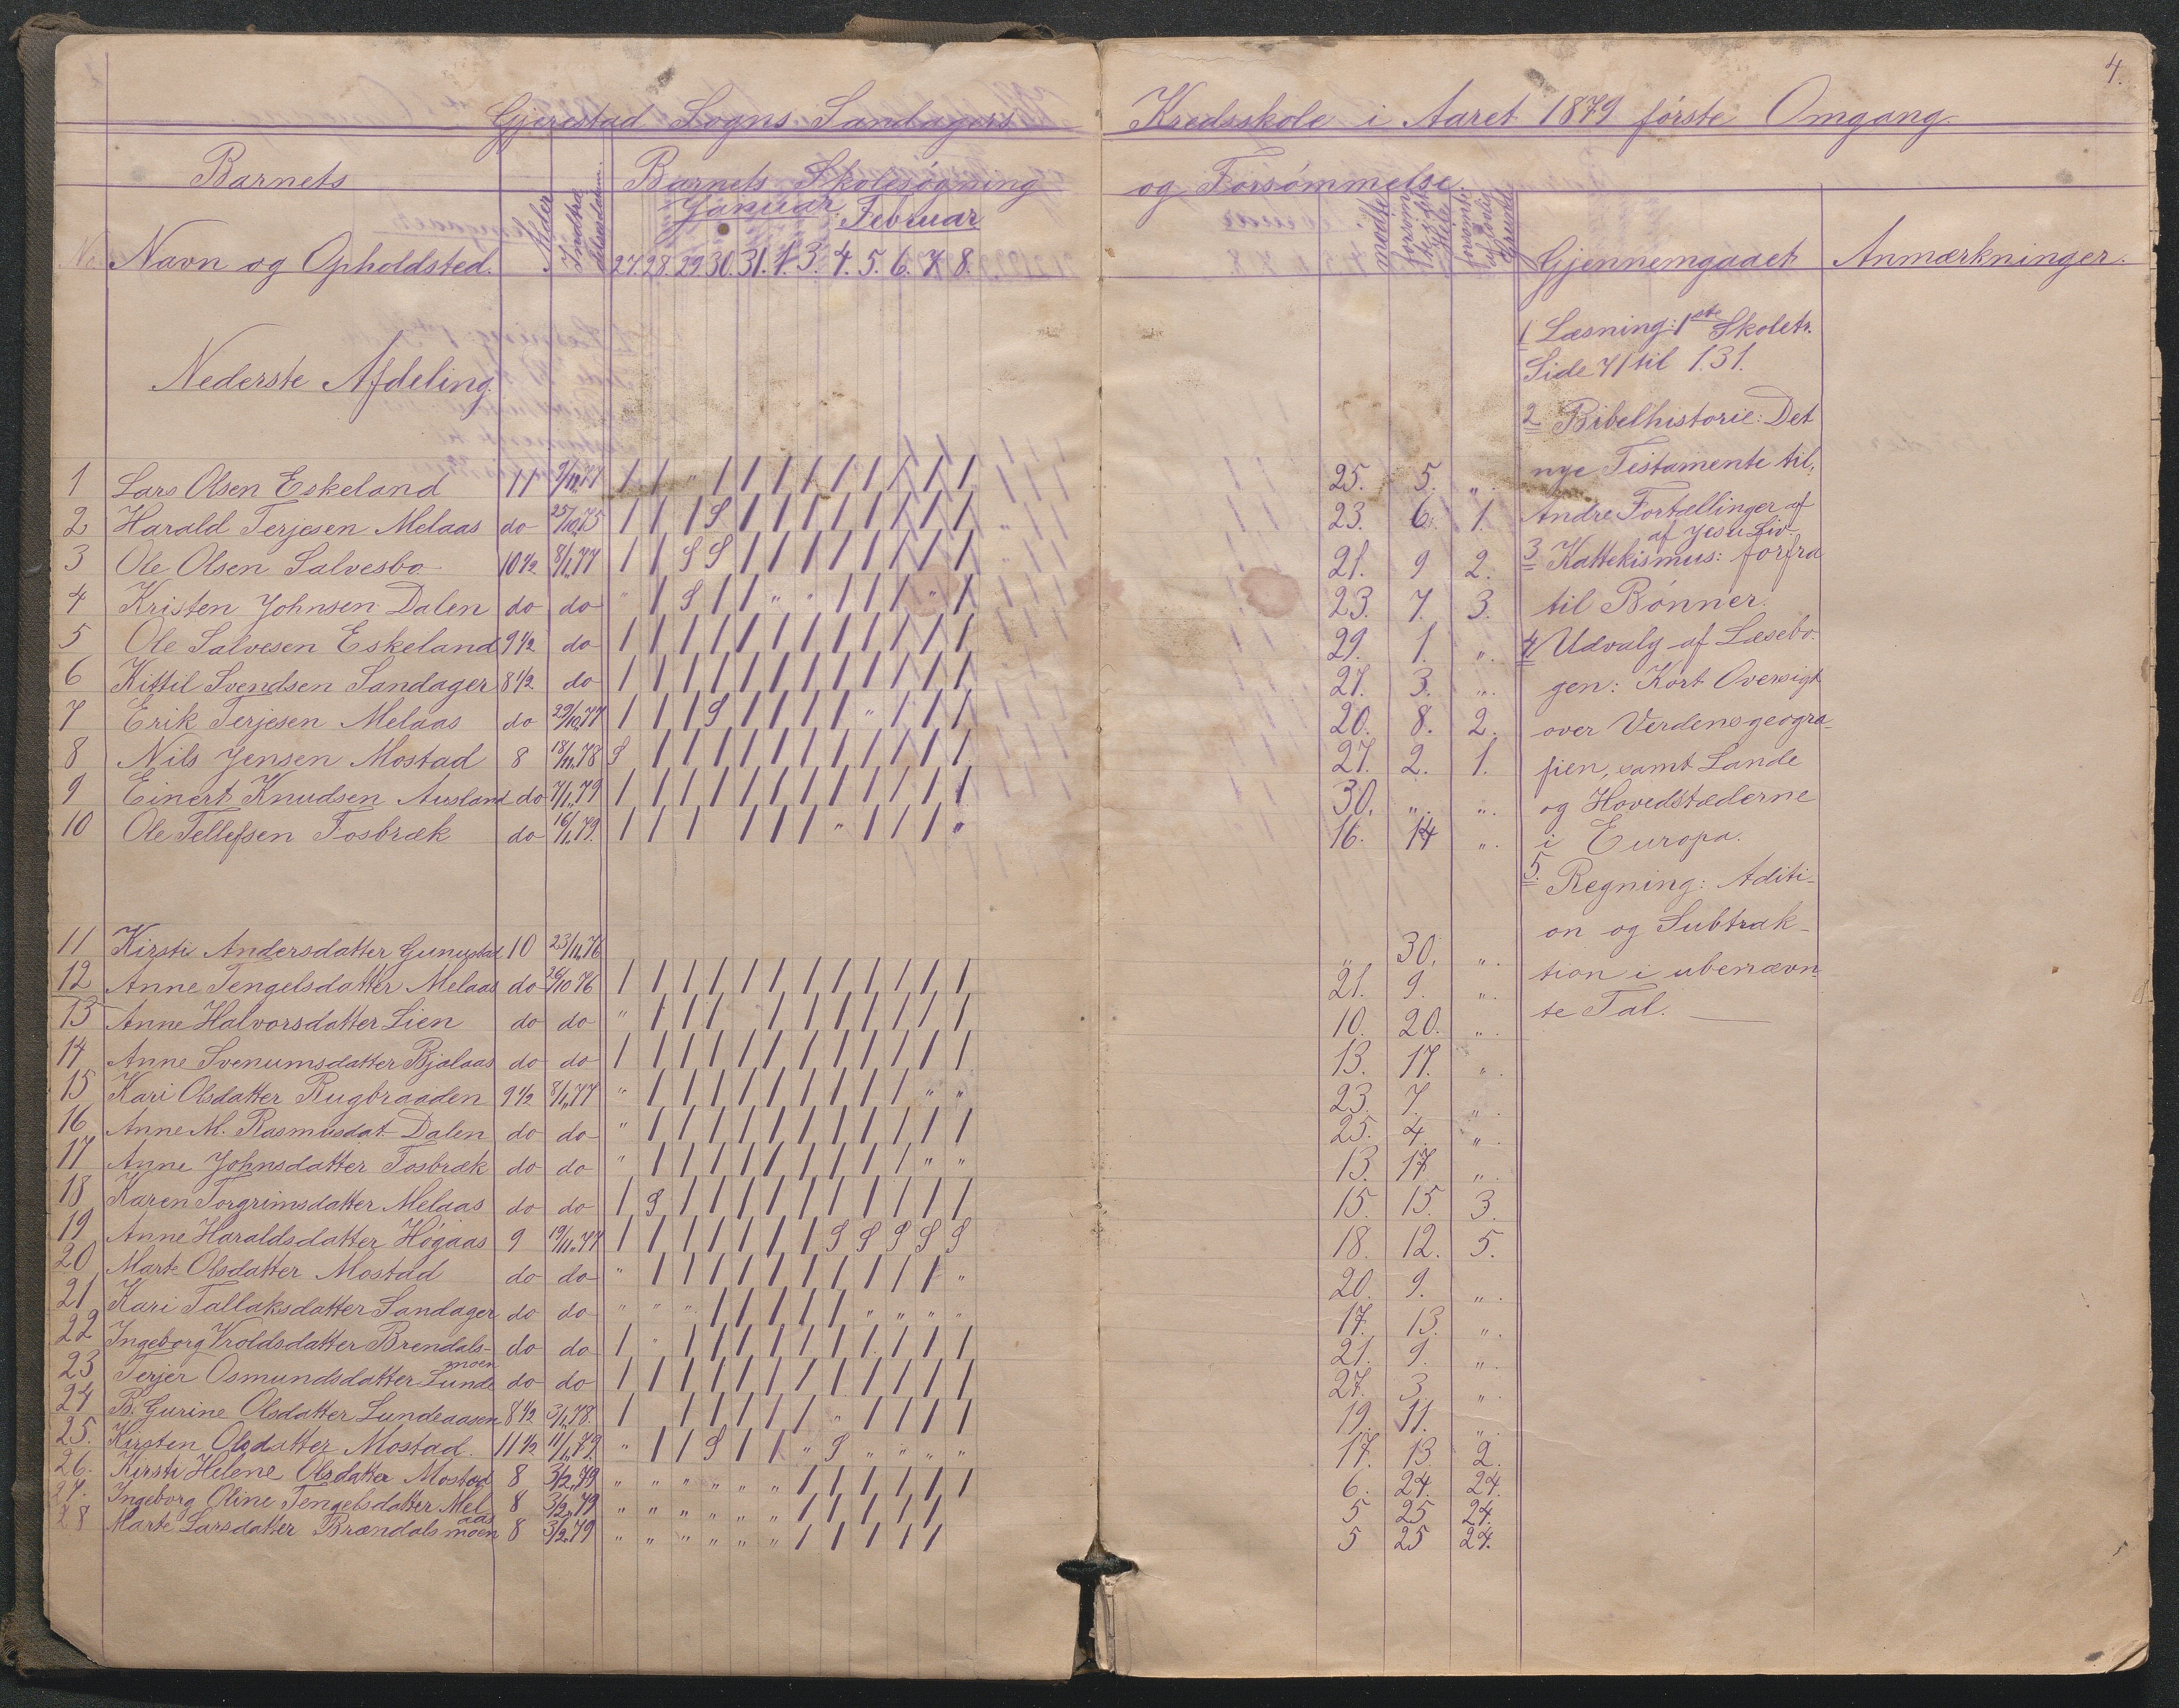 4.
Gjerestad Sogns Sandagers Kredsskole i Aaret 1879 første Omgang.
Barnets Alder Indtrædelsesdatum. Barnets Skolesøgning og Forsømmelse.
Januar. Februar
No Navn og Opholdsted. 27. 28. 29. 30. 31. 1. 3. 4. 5. 6. 7. 8. mødte forsømt Gjennemgaaet Anmærkninger.
Nederste Afdeling
1 Lars Olsen Eskeland 11 / / " / / / / / / / / / 25. 5. ".
2 Harald Terjesen Melaas do 25/10.75 / / / S / / / / / / / / 23. 6. 1.
3 Ole Olsen Salvesbo 10 1/2 8/1.77 / / S S / / / / / / / / 21. 9 2.
4 Kristen Johnsen Dalen do do " / S / / " " / / / " / 23. 7. 3.
5 Ole Salvesen Eskeland 9 1/2 do / / / / / / / / / / / / 29. 1. ".
6 Kittil Svendsen Sandager 8 1/2 do / / / / / / / / / / / / 27. 3. ".
7 Erik Terjesen Melaas do 29/10.77 / / / S / / / / " / / / 20. 8. 2.
8 Nils Jensen Mostad 8 18/11.78 S / / / / / / / / / / / 27. 2. 1.
9 Einert Knudsen Ausland do 7/1.79 / / / / / / / / / / / / 30. ". ".
10 Ole Tellefsen Fosbræk do 16/1.79. / / / / / / " / / / " 16. 14 ".
11 Kirsti Andersdatter Gunustad 10 23/11.76 " 30. ".
12 Anne Tengelsdatter Melaas do 26/10 76 / / / / / / / / / / / / 21. 9. ".
13 Anne Halvorsdatter Lien do do " / / / / / / / / / / 10. 20. ".
14 Anne Svenumsdatter Bjalaas do do / / / / / / / / / / / / 13. 17. ".
15 Kari Olsdatter Rugbraaden 9 1/2 8/1.77 " / / / / / / / / / " " 23. 7. ".
16 Anne M. Rasmusdat. Dalen do do " / / / / / / / / / / / 25. 4. ".
17 Anne Johnsdatter Fosbræk do do " / / / / / / / / / " " 13. 17. ".
18 Karen Torgrimsdatter Melaas do do / S / / / / / / / / / / 15. 15. 3.
19 Anne Haraldsdatter Høgaas 9 19/11.77 / / / / / / / S S S S S 18. 12. 5.
20 Marte Olsdatter Mostad do do " / / / / / / / / / / " 20. 9. ".
21 Kari Tallaksdatter Sandager do do " " " / / / / / " " " " 17. 13. ".
22 Ingeborg Vroldsdatter Brendalsmoen do do / " / / / / / / / / / / 21. 9. ".
23 Terjer Osmundsdatter Lunde do do / / / / / / / / / / / / 27. 3. ".
24 B. Gurine Olsdatter Lundeaasen 8 1/2 3/1.78. / / / / / / " / / / / 19. 11. ".
25. Kirsten Olsdatter Mostad. 11 1/2 11/1.79. " / / S / / " S " " " " 17. 13. 2.
26. Kirsti Helene Olsdatter Mostad 8 3/2.79 " " " " " " / / / / / / 6. 24. 24.
27. Ingeborg Oline Tengelsdatter Melaas 8 3/2.79 " " " " " " / / / / / 5 25 24.
28 Marte Larsdatter Brændalsmoen 8 3/2.79 " " " " " " / / / / / 5 25 24.
1 Læsning: 1ste Skoletr.
Side 71 til 131.
2 Bibelhistorie: Det
nye Testamente til,
Andre Fortællinger af
af Jesu Liv.
3 Kattekismus: forfra
til Bønner.
4 Udvalg af Læsebo-
gen: Kort Oversigt
over Verdensgeogra-
fien, samt Lande
og Hovedstæderne
i Europa.
5. Regning: Aditi-
on og Subtrak-
tion i ubenævn
te Tal.